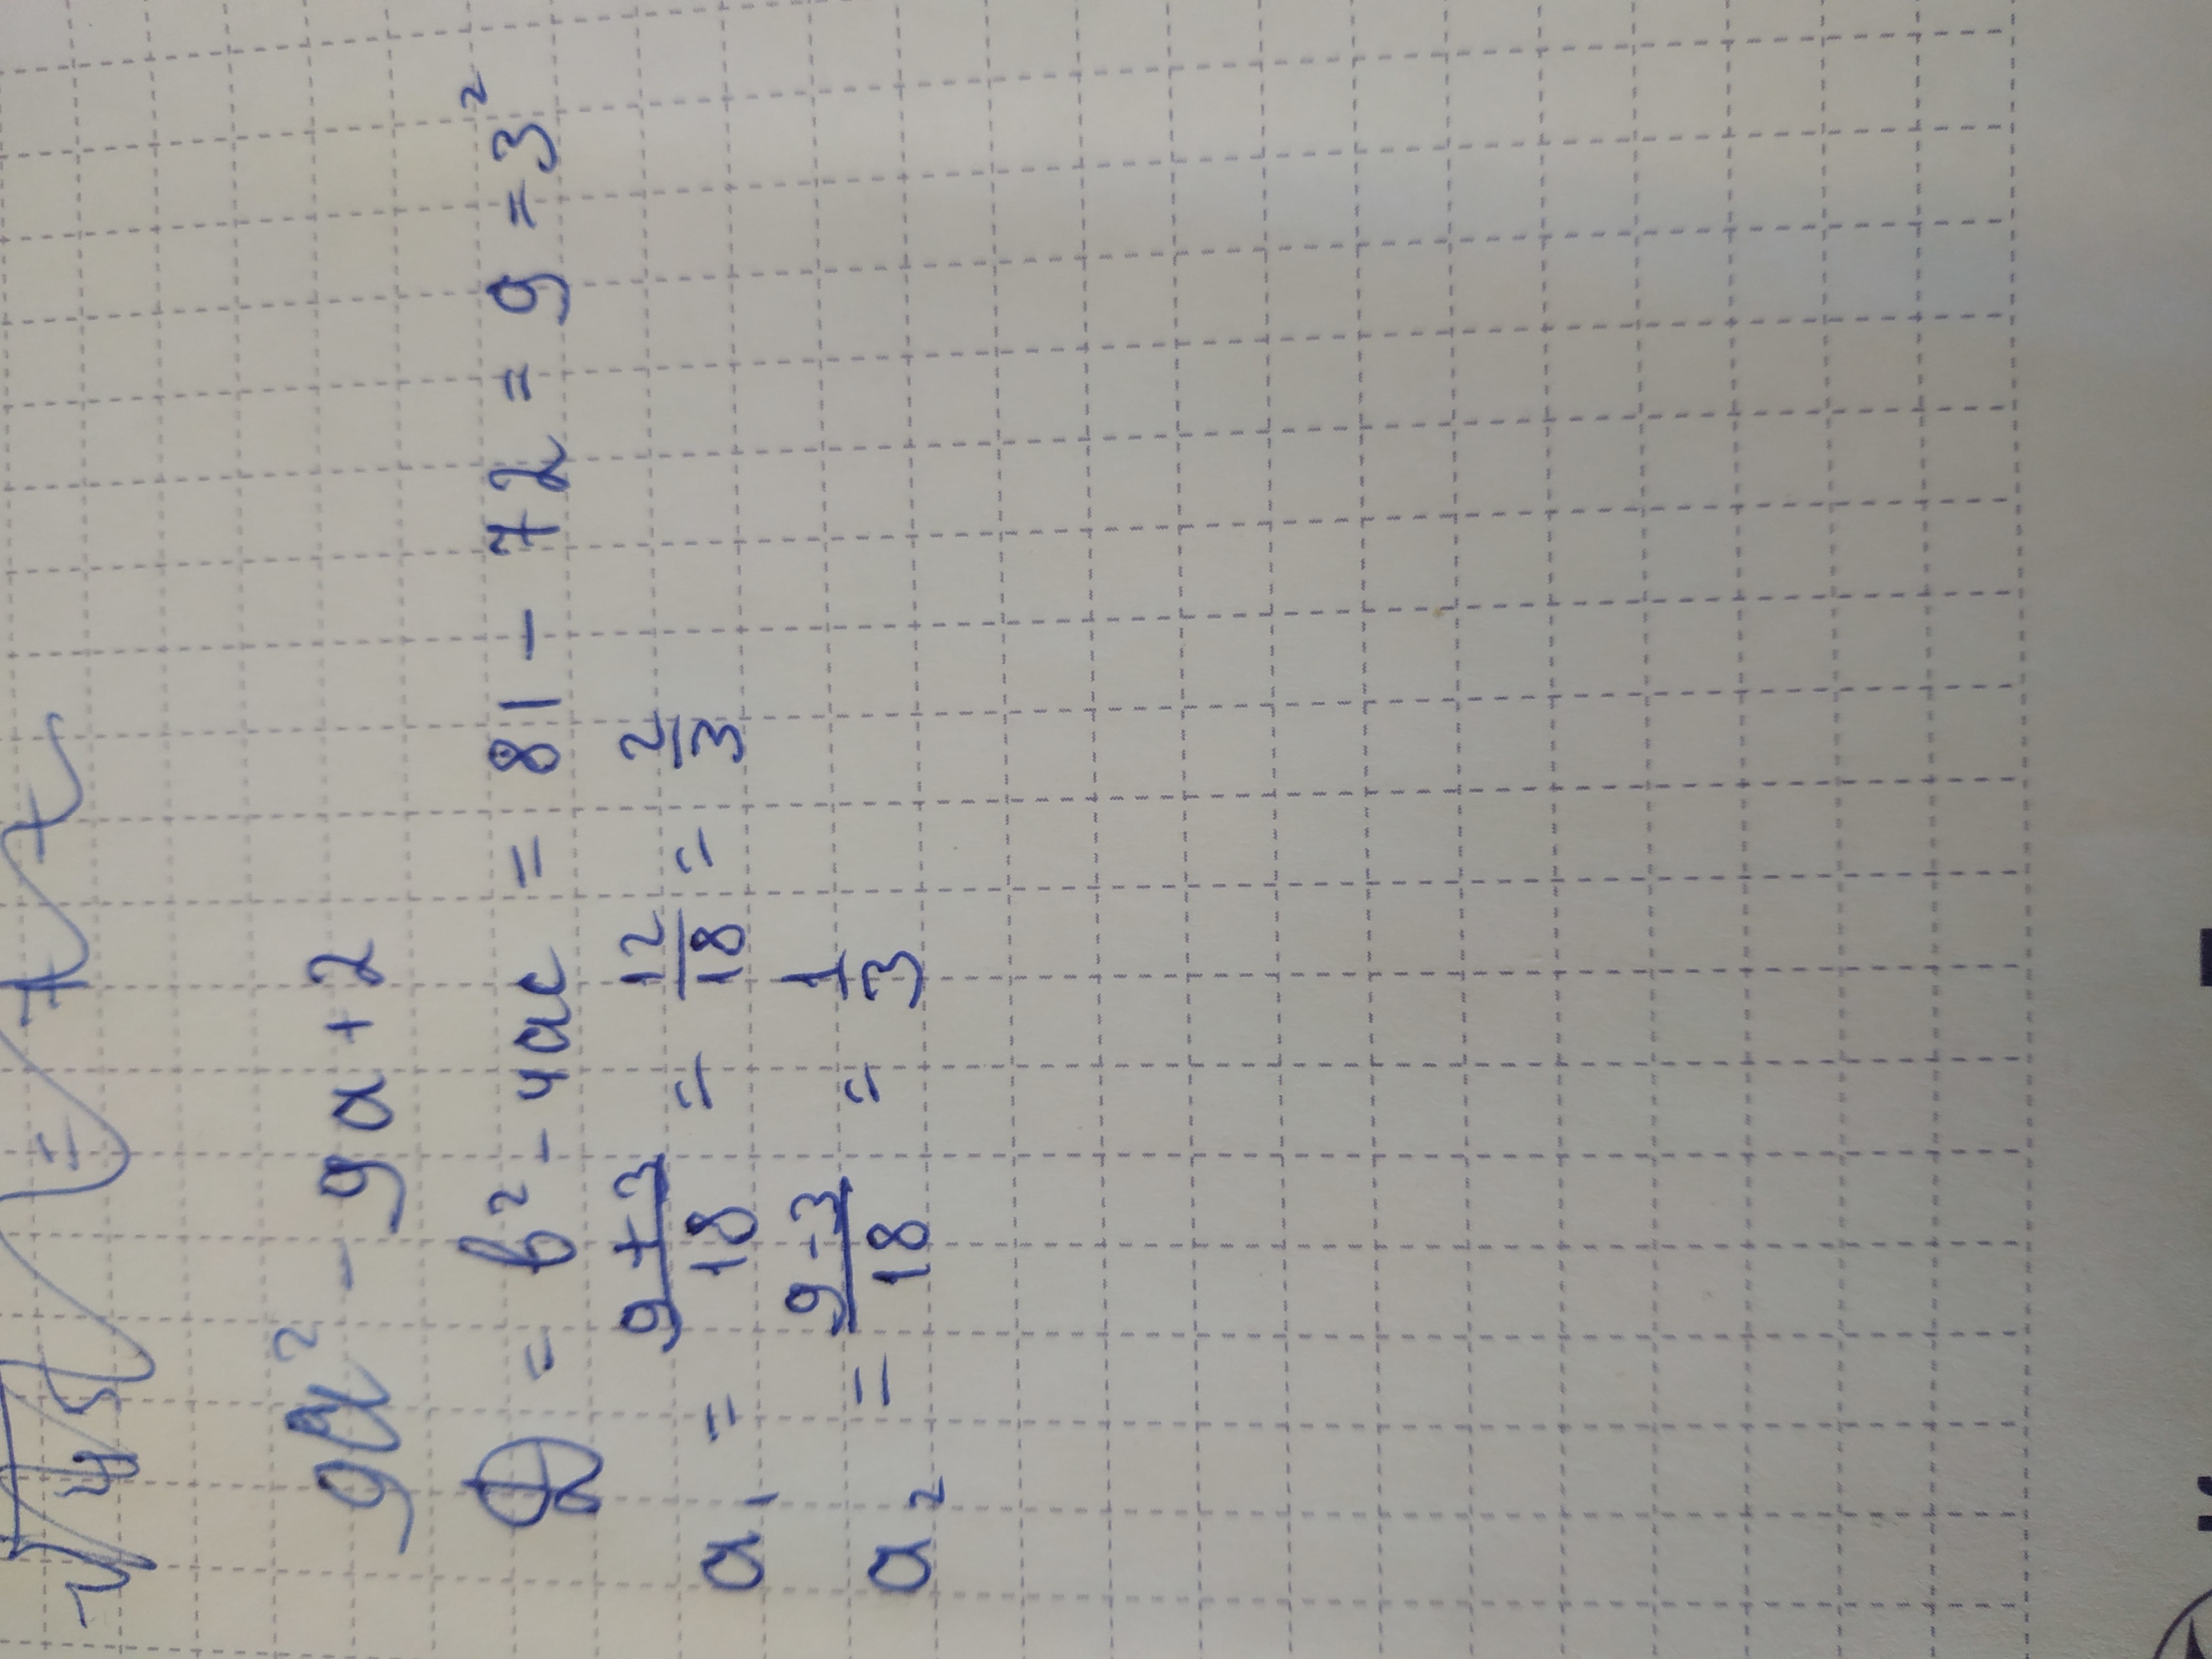 9a² - 9a + 2
D = b² - 4ac = 81 - 72 = 9 = 3²
a₁ = (9+3)/18 = 12/18 = 2/3
a₂ = (9-3)/18 = 1/3